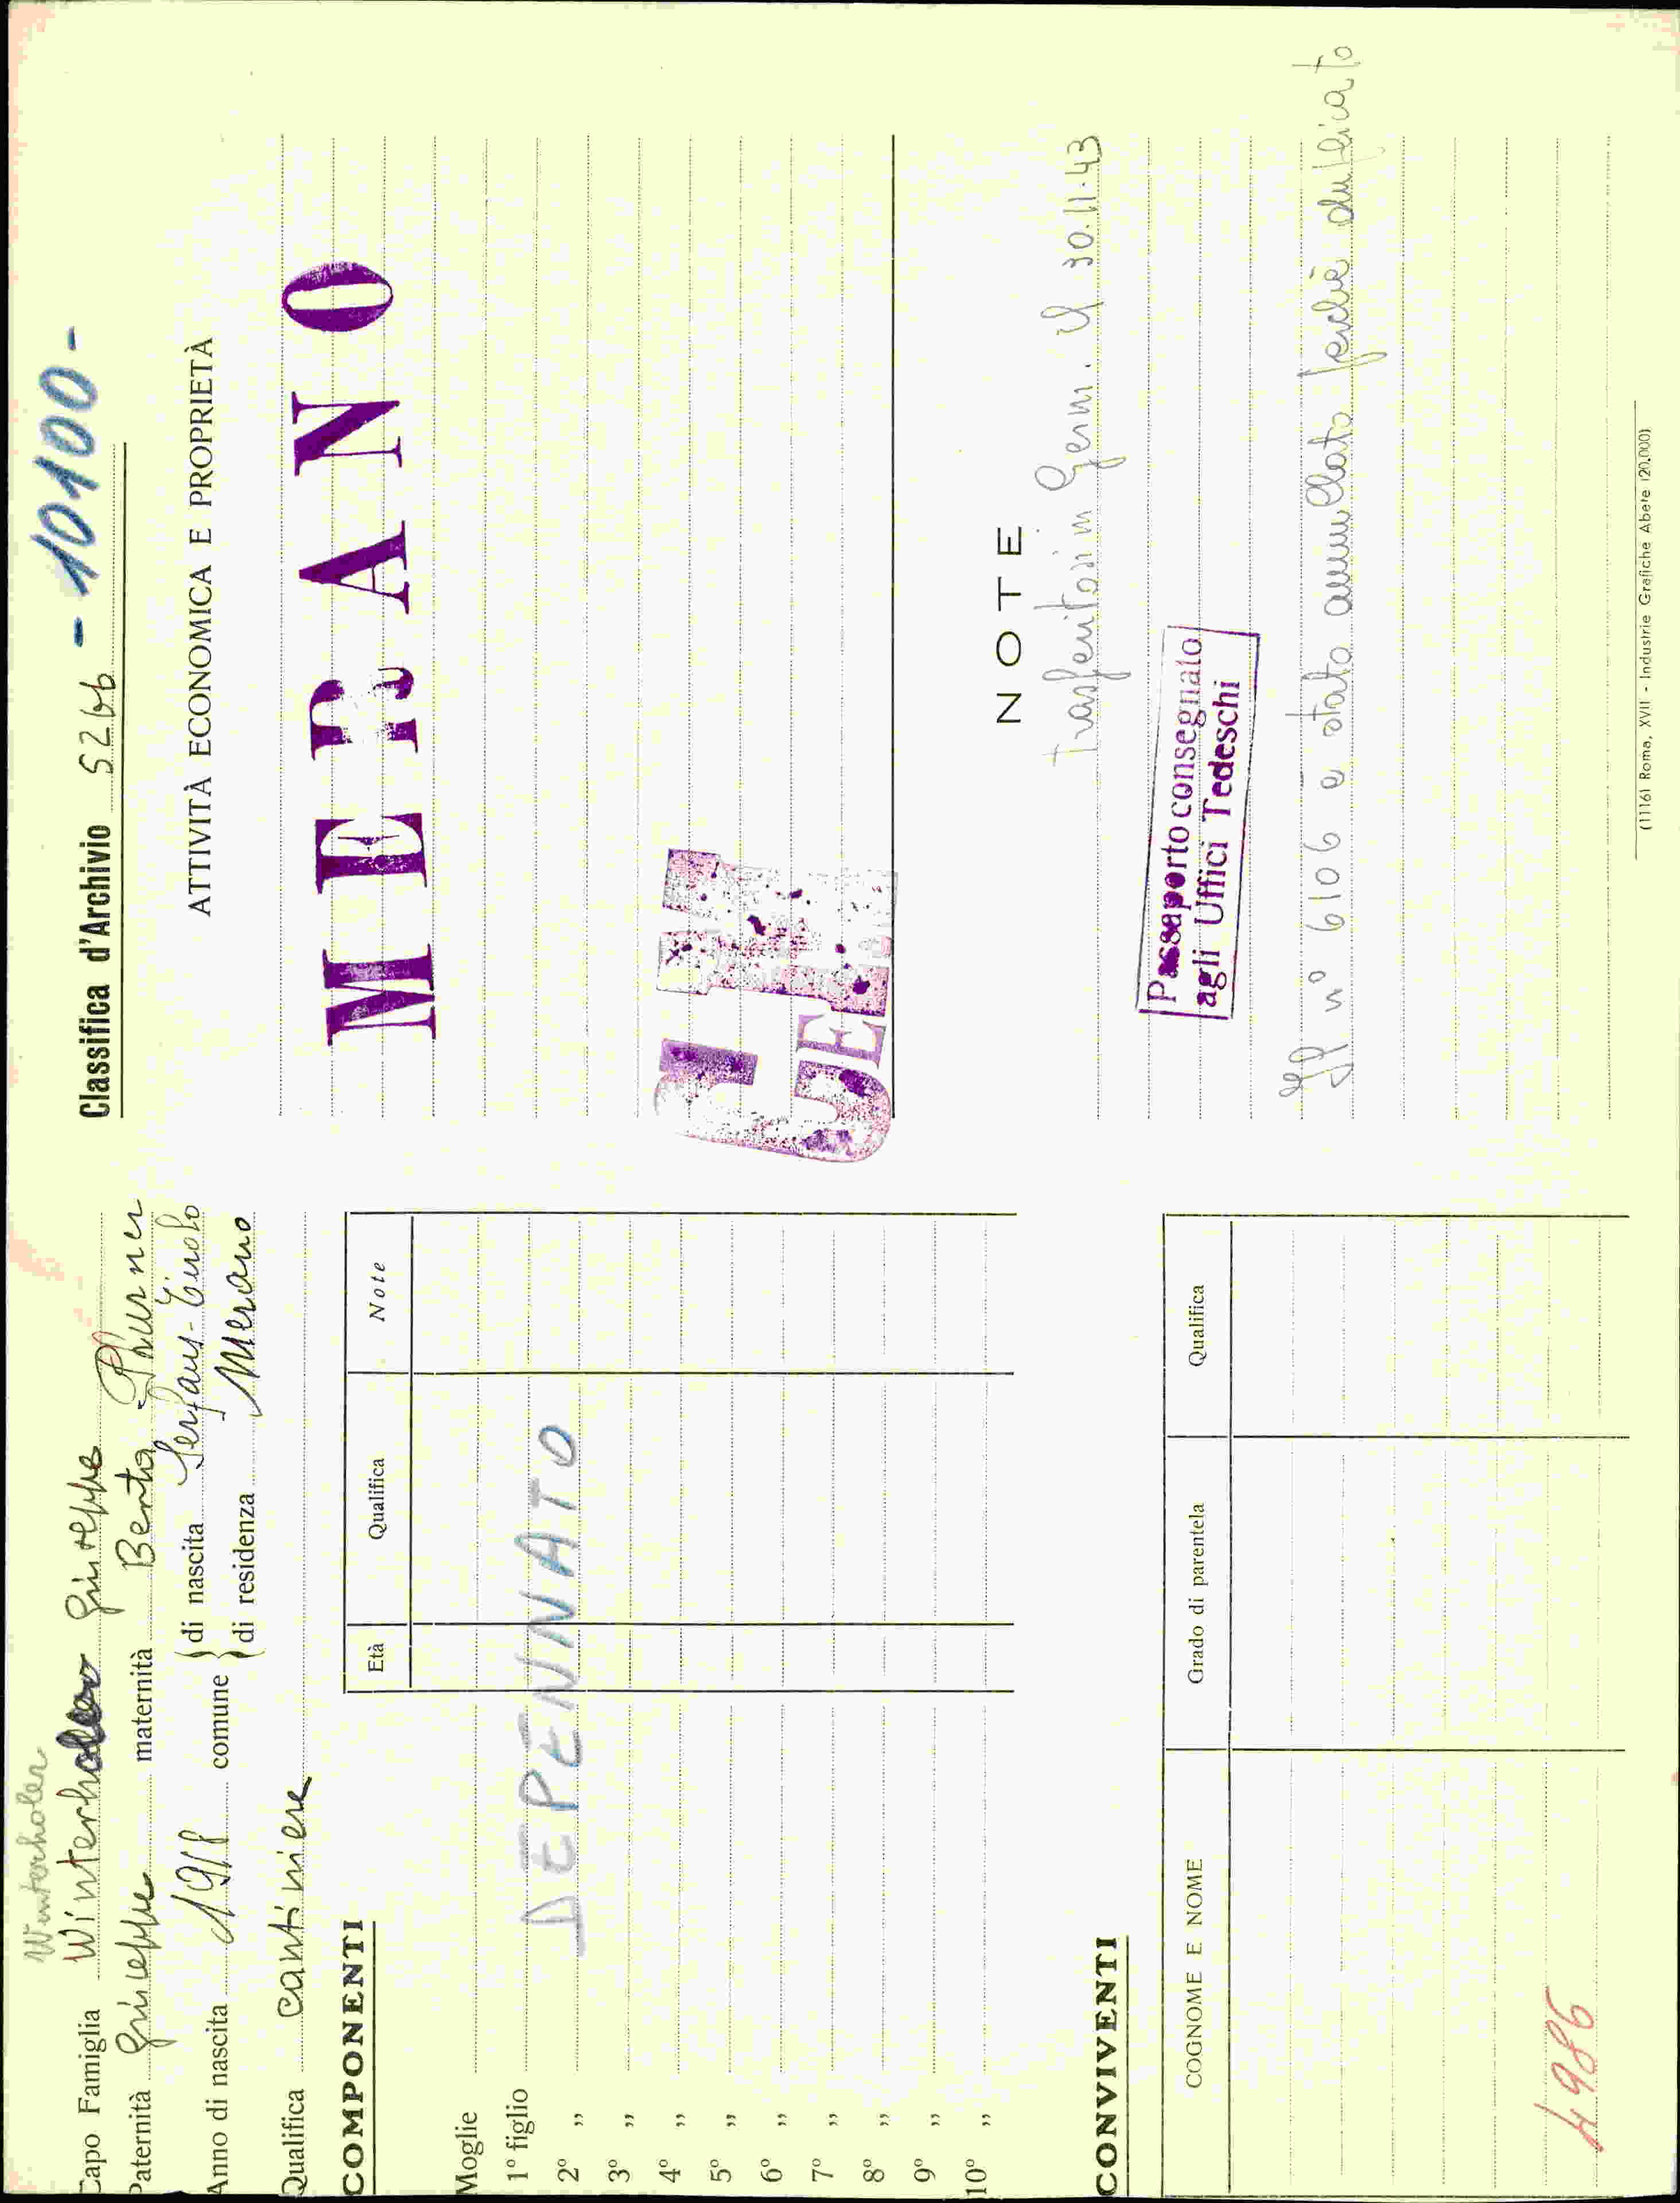 Winterholer
Capo Famiglia Winterholer Giuseppe
Paternità Giuseppe maternità Berta Thurner
Anno di nascita 1918 comune di nascita Serfaus-Tirolo
di residenza Merano
Qualifica cantiniere
COMPONENTI
Età Qualifica Note
Moglie
1º figlio
2º „
3º „
4º „
5º „
6º „
7º „
8º „
9º „
10º „
DEPENNATO
CONVIVENTI
COGNOME E NOME Grado di parentela Qualifica
4986
Classifica d'Archivio 5266 - 10100 -
ATTIVITÀ ECONOMICA E PROPRIETÀ
MERANO
NOTE
Trasferitosi in Germ. il 30.11.43
Passaporto consegnato
agli Uffici Tedeschi
Il nº 6106 è stato annullato perchè duplicato
(11161 Roma, XVII - Industrie Grafiche Abete (20.000)